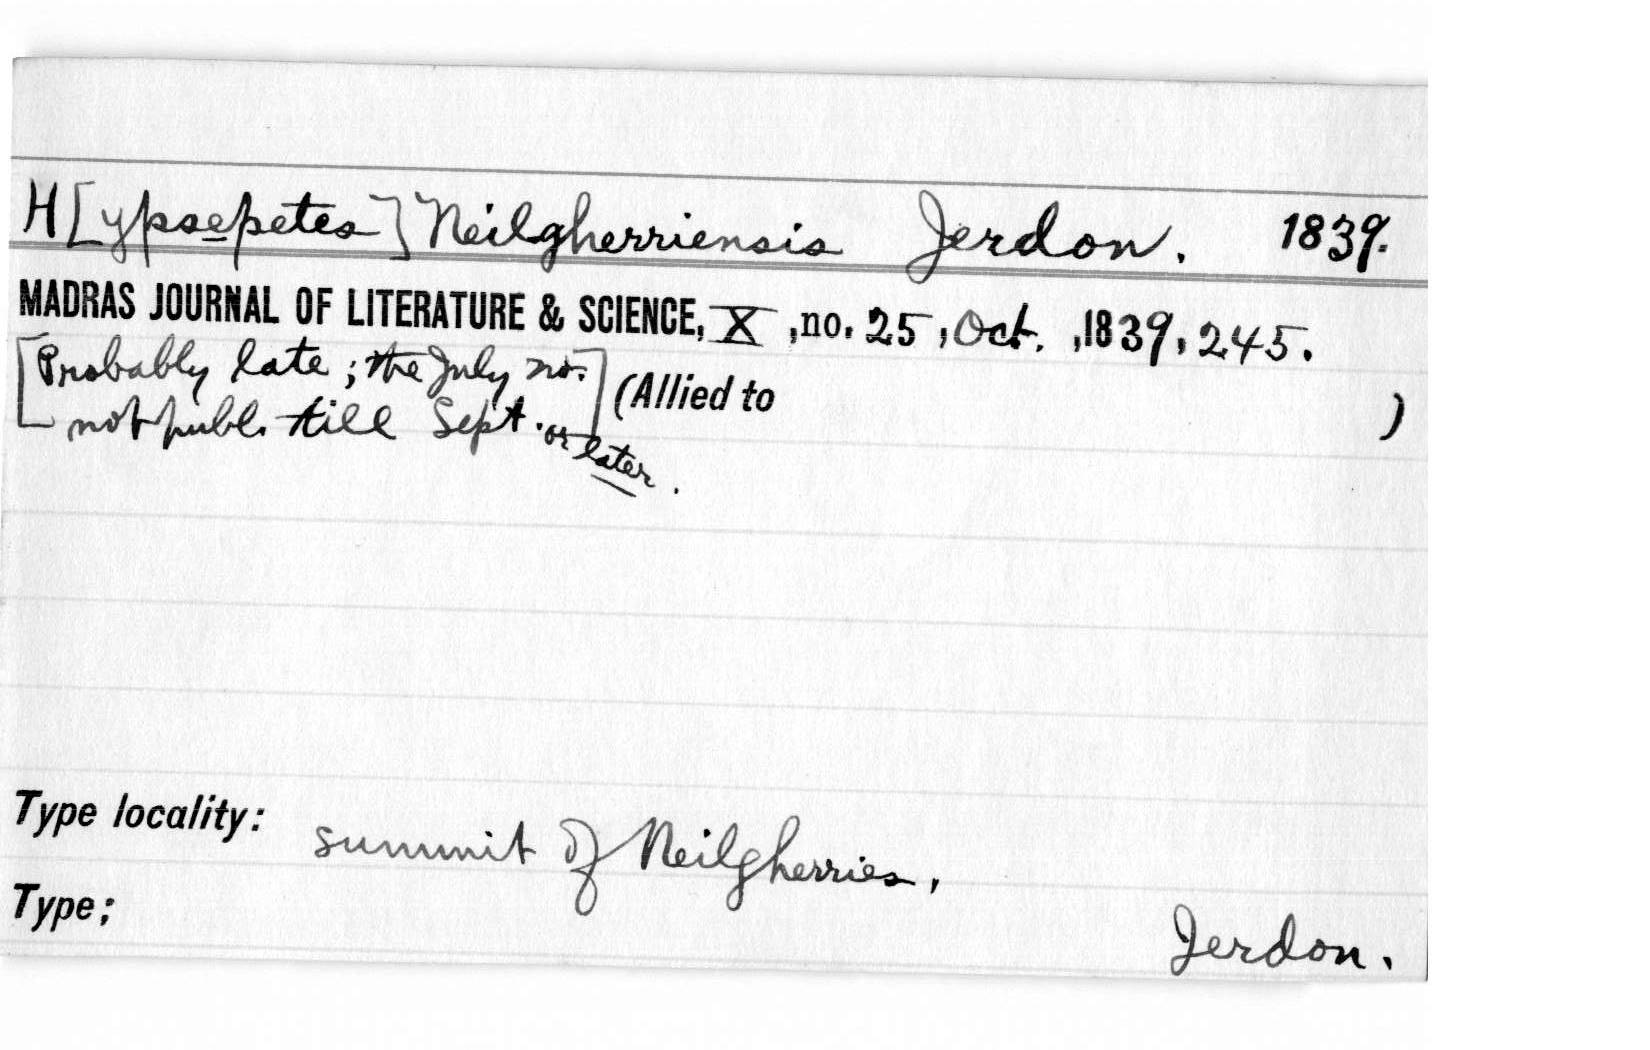 H[ypsepetes] Neilgherriensis Jerdon. 1839.
MADRAS JOURNAL OF LITERATURE & SCIENCE, X, no. 25, Oct. ,1839, 245.
[Probably late; the July no. (Allied to )
not publ. till Sept. or later.]
Type locality: summit of Neilgherries,
Type;
Jerdon.